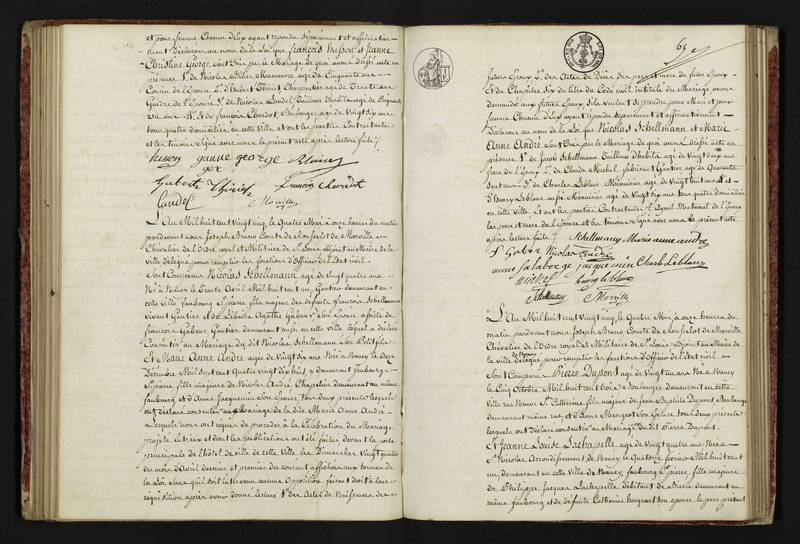 et pour femme Chacun d'eux ayant répondu séparément et affirmative-
-ment Déclarons au nom de la Loi que françois husson et Jeanne
Christine George sont Unis par le Mariage de quoi avons dressé acte en
présence de Nicolas agé de Cinquante
de l'Epoux de hubert Thiriet Charpentier agé de Trente
de l'Epouse de Nicolas Landel Tailleur d'habits agé de Cinquante
ans et de françois Chardot, Boulanger agé de Vingt six ans
tous quatre domiciliés en cette Ville et ont les parties Contractantes
et les témoins signé avec nous le présent acte après lecture faite
husson jeanne george
hubert Thiriet françois Chardot
Landel Morville
L'An Mil huit cent Vingt cinq, le Quatre Mai à onze heures du matin
pardevant nous Joseph Bruno Comte de Rousselot de Morville
Chevalier de l'Ordre royal et Militaire de St. Louis adjoint au Maire de la
Ville délégué pour remplir les fonctions d'Officier de l'Etat civil.
Sont Comparus Nicolas Schellmann agé de Vingt quatre ans
Né à Nancy le Trente Avril Mil huit cent un, Gantier demeurant en
cette Ville faubourg St pierre fils majeur des défunts françois Schellmann
vivant Gantier et de Agathe Gabor Son Epouse assisté de
françois Gabor Gantier demeurant aussi en cette Ville lequel a déclaré
Consentir au Mariage du dit Nicolas Schellmann Son Petit fils
Et Marie Anne André agée de Vingt six ans Née à Nancy le douze
Décembre Mil Sept cent Quatre Vingt dix huit y demeurant faubourg
St pierre, fille majeure de Nicolas André Chapelier demeurant au même
faubourg et d'Anne Jacquemin Son Epouse tous deux présents lesquels
ont déclaré consentir au Mariage de la dite Marie Anne André
Lesquels nous ont requis de procéder à la Célébration du Mariage
projeté entr'eux et dont les publications ont été faites devant la porte
principale de l'hôtel de Ville de cette Ville, les Dimanches Vingt quatre
du mois d'Avril dernier et premier du courant affichées aux termes de
la Loi sans qu'il soit intervenu aucune Opposition faisant droit à leur
réquisition après avoir donné lecture 1° des Actes de Naissance des
69
futurs Epoux 2° des Actes de Décès des père et mère du futur Epoux
Et du Chapitre Six du titre du Code civil intitulé du Mariage avons
demandé aux futurs Epoux s'ils veulent se prendre pour Mari et pour
femme Chacun d'eux ayant répondu séparément et affirmativement
Déclarons au nom de la Loi que Nicolas Schellmann et Marie
Anne André sont Unis par le Mariage de quoi avons dressé acte en
présence 1° de Jacob Schellmann Tailleur d'habits agé de Vingt deux ans
frère de l'Epoux 2° de Claude Michel Gantier agé de Quarante
Sept ans 3° de Charles Leblanc Menuisier agé de Vingt huit ans
d'henry Leblanc aussi Menuisier agé de Vingt six ans tous quatre domiciliés
en cette Ville et ont les parties Contractantes l'Ayeul Maternel de l'Epoux
les père et mère de l'Epouse et les témoins signé avec nous le présent acte
après lecture faite Schellmann Marie anne andré
f Gabor Nicolas andré
jacquemin Charle Leblanc
michel henry leblanc
Schellmann Morville
L'An Mil huit cent Vingt cinq, le Quatre Mai, à onze heures du
matin pardevant nous Joseph Bruno Comte de Rousselot de Morville
Chevalier de l'Ordre royal et Militaire de St Louis adjoint au Maire de
la Ville de Nancy délégué pour remplir les fonctions d'Officier de l'Etat civil
Sont Comparus Pierre Dupont agé de Vingt un ans Né à Nancy
le Cinq Octobre Mil huit cent trois Boulanger demeurant en cette
Ville rue Neuve Ste Catherine fils majeur de Jean Baptiste Dupont Boulanger
demeurant même rue, et d'Anne Mangeot Son Epouse tous deux présents
lesquels ont déclaré consentir au Mariage du dit Pierre Dupont.
Et Jeanne Louise Lachapelle agée de Vingt quatre ans Née à
St Nicolas Arrondissement de Nancy le Quatorze Mil huit cent
un, demeurant en cette Ville de Nancy, faubourg St pierre fille majeure
de Philippe Jacques Lachapelle débitant de Bierre demeurant au
même faubourg et de défunte Catherine son épouse, le père présent